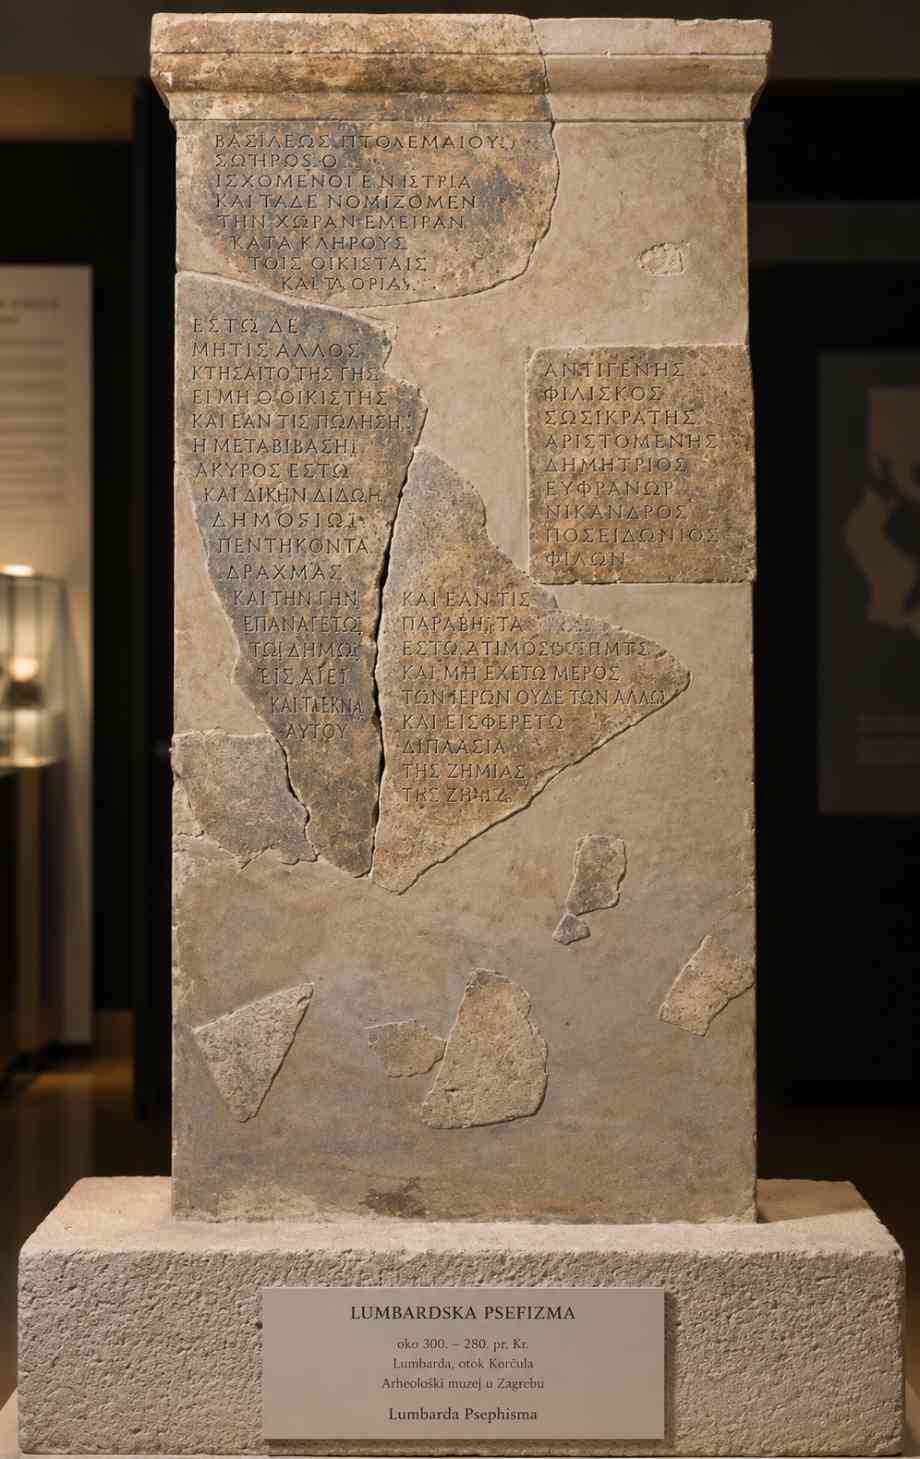 ΒΑΣΙΛΕΩΣ ΠΤΟΛΕΜΑΙΟΥ
ΙΣΧΟΜΕΝΟΙ ΕΝ ΙΣΤΡΙΑ
ΚΑΙ ΤΑΔΕ ΝΟΜΙΖΟΜΕΝ
ΤΗΝ ΧΩΡΑΝ ΕΜΕΙΡΑΝ
ΚΑΤΑ ΚΛΗΡΟΥΣ
ΤΟΙΣ ΟΙΚΙΣΤΑΙΣ
ΚΑΙ ΤΑ ΟΡΙΑ
ΕΣΤΩ ΔΕ
ΜΗΤΙΣ ΑΛΛΟΣ
ΚΤΗΣΑΙΤΟ ΤΗΣ ΓΗΣ
ΕΙ ΜΗ Ο ΟΙΚΙΣΤΗΣ
ΚΑΙ ΕΑΝ ΤΙΣ ΠΩΛΗΣΗ
Η ΜΕΤΑΒΙΒΑΣΗΙ
ΑΚΥΡΟΣ ΕΣΤΩ
ΚΑΙ ΔΙΚΗΝ ΔΙΔΩΗ
ΔΗΜΟΣΙΩΙ
ΠΕΝΤΗΚΟΝΤΑ
ΔΡΑΧΜΑΣ
ΚΑΙ ΤΗΝ ΓΗΝ
ΕΠΑΝΑΓΕΤΩ
ΤΩΙ ΔΗΜΩΙ
ΕΙΣ ΑΙΕΙ
ΚΑΙ ΤΑ ΕΚΝΑ
ΑΥΤΟΥ
ΚΑΙ ΕΑΝ ΤΙΣ
ΠΑΡΑΒΗΙ ΤΑ
ΕΣΤΩ ΑΤΙΜΟΣ
ΚΑΙ ΜΗ ΕΧΕΤΩ ΜΕΡΟΣ
ΤΩΝ ΙΕΡΩΝ ΟΥΔΕ ΤΩΝ ΑΛΛΩ
ΚΑΙ ΕΙΣΦΕΡΕΤΩ
ΔΙΠΛΑΣΙΑ
ΤΗΣ ΖΗΜΙΑΣ
ΑΝΤΙΓΕΝΗΣ
ΦΙΛΙΣΚΟΣ
ΣΩΣΙΚΡΑΤΗΣ
ΑΡΙΣΤΟΜΕΝΗΣ
ΔΗΜΗΤΡΙΟΣ
ΕΥΦΡΑΝΩΡ
ΝΙΚΑΝΔΡΟΣ
ΠΟΣΕΙΔΩΝΙΟΣ
ΦΙΛΩΝ
LUMBARDSKA PSEFIZMA
oko 300. – 280. pr. Kr.
Lumbarda, otok Korčula
Arheološki muzej u Zagrebu
Lumbarda Psephisma